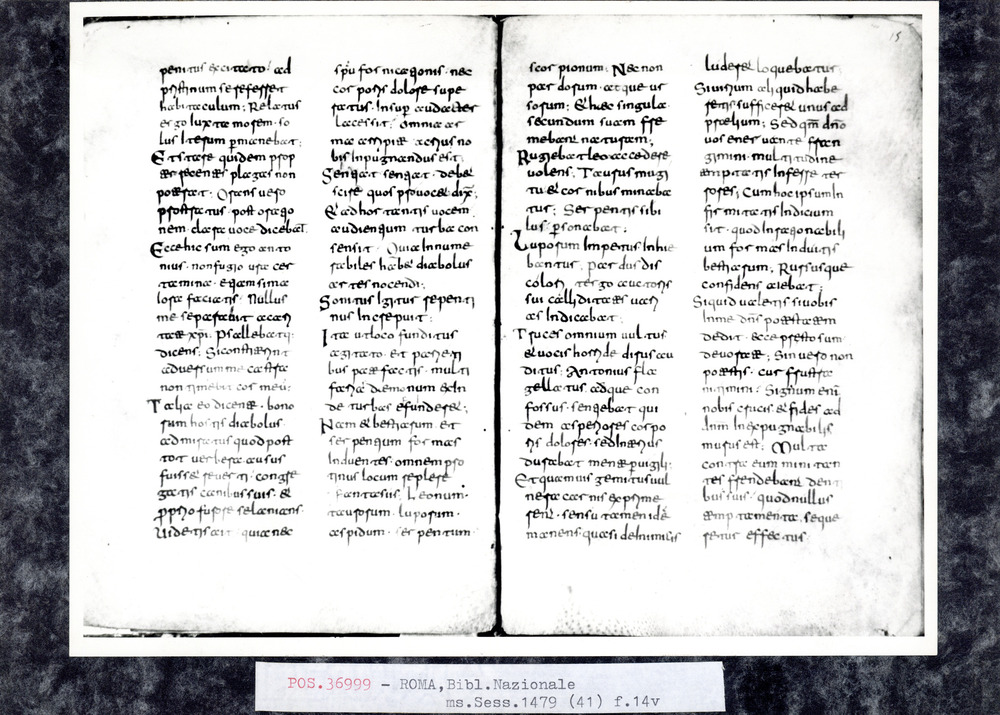 penitus excitato. ad
pristinum se refesset
habitaculum; Relatus
ergo luxta morem. so
lus Iterum permanebat;
Et stare quidem prop
ter recentes plagas non
poterat. Orans vero
prostratus. post oratio
nem clara voce dicebat.
Ecce hic sum ego anto
nius. non fugio vestra cer
tamina. etiam si ma
lora faciatis. Nullus
me separabit a cari
tate xpi. Psallebatq;
dicens; Si consistant
adversum me castra
non timebit cor meu;
Talia eo dicente. bono
rum hostis diabolus.
admiratus quod post
tot verbera ausus
fuisset reverti. congre
gatis canibus suis. et
proprio furore se lanians.
Videtis ait quia nec
spu fornicationis. nec
corporis dolore supe
ratus. Insup audacter
lacessit; Omnia ar
ma arripite acrius no
bis Inpugnandus est;
Sentiat sentiat. debet
scire quos provocet. dix;
Et ad hortantis vocem.
audientium turba con
sensit. Quia Innume
rabiles habet diabolus
artes nocendi;
Sonitus Igitur repenti
nus Increpuit;
Ita ut loco funditus
agitato. et parieti
bus patefactis. multi
faria demonum exin
de turba se effunderet;
Nam et bestiarum. et
serpentium formas
Induentes. omnem pro
tinus locum replere
fantasiis. Leonum.
taurorum. luporum.
aspidum. serpentum
scorpionum; Nec non
pardorum. atque ur
sorum; Et haec singula
secundum suam fre
mebant naturam;
Rugiebat leo accedere
volens; Taurus mugi
tu et cornibus minaba
tur; Serpentis sibi
lus. personabat;
Luporum Impetus Inhie
bantur. pardus dis
color. tergo auctoris
sui calliditates vari
as Indicabat;
Truces omnium vultus
et vocis horride dirus au
ditus; Antonius fla
gellatus. adque con
fossus. sentiebat qui
dem asperiores corpo
ris dolores. sed Interritus
durabat mente pervigili.
Et quamvis gemitus vul
nera carnis exprime
rent. sensu tamen idem
manens. quasi de Inimicis
15
luderet loquebatur.
Si virium aliquid habe
retis sufficeret unus ad
proelium; Sed qm dno
vos enervante fran
gimini. multitudine
temptatis Inferre ter
rores; Cum hoc ipsum In
firmitatis Indicium
sit. quod Inrationabili
um formas Induitis
bestiarum; Rursusque
confidens aiebat;
Si quid valetis si vobis
In me dns potestatem
dedit. ecce presto sum
devorate; Sin vero non
potestis. cur frustra
nitimini. Signum eni
nobis crucis. et fides ad
dnm Inexpugnabilis
murus est; Multa
contra eum minitan
tes frendebant denti
bus suis. quod nullus
temptamenta. seque
retur effectus
POS.36999 - ROMA,Bibl.Nazionale
ms.Sess.1479 (41) f.14v